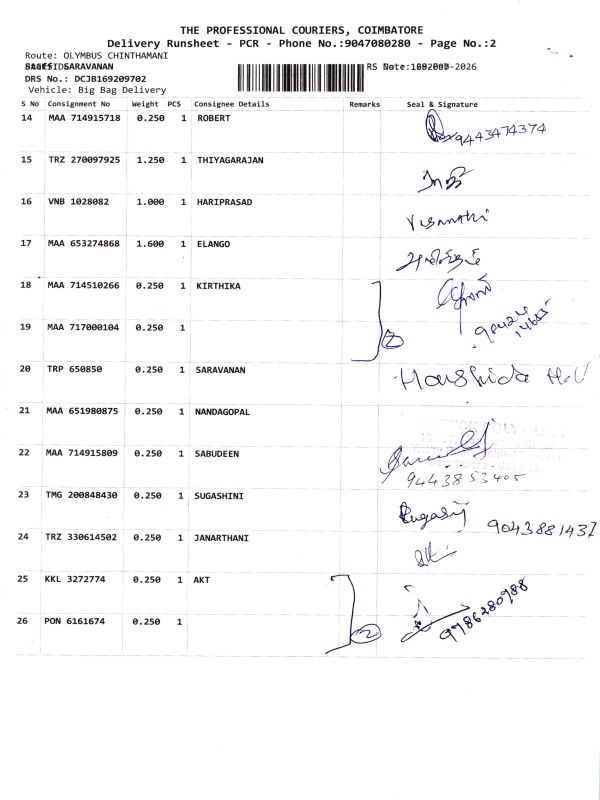 THE PROFESSIONAL COURIERS, COIMBATORE
Delivery Runsheet - PCR - Phone No.:9047080280 - Page No.:2
Route: OLYMBUS CHINTHAMANI
SARAVANAN
DRS No.: DCJB169209702
Vehicle: Big Bag Delivery
S No Consignment No Weight PCS Consignee Details Remarks Seal & Signature
14 MAA 714915718 0.250 1 ROBERT 9443474374
15 TRZ 270097925 1.250 1 THIYAGARAJAN
16 VNB 1028082 1.000 1 HARIPRASAD
17 MAA 653274868 1.600 1 ELANGO
18 MAA 714510266 0.250 1 KIRTHIKA
19 MAA 717000104 0.250 1 2
20 TRP 650850 0.250 1 SARAVANAN Harshida
21 MAA 651980875 0.250 1 NANDAGOPAL
22 MAA 714915809 0.250 1 SABUDEEN
9443853405
23 TMG 200848430 0.250 1 SUGASHINI
9043881437
24 TRZ 330614502 0.250 1 JANARTHANI
25 KKL 3272774 0.250 1 AKT
26 PON 6161674 0.250 1 2 9786280988